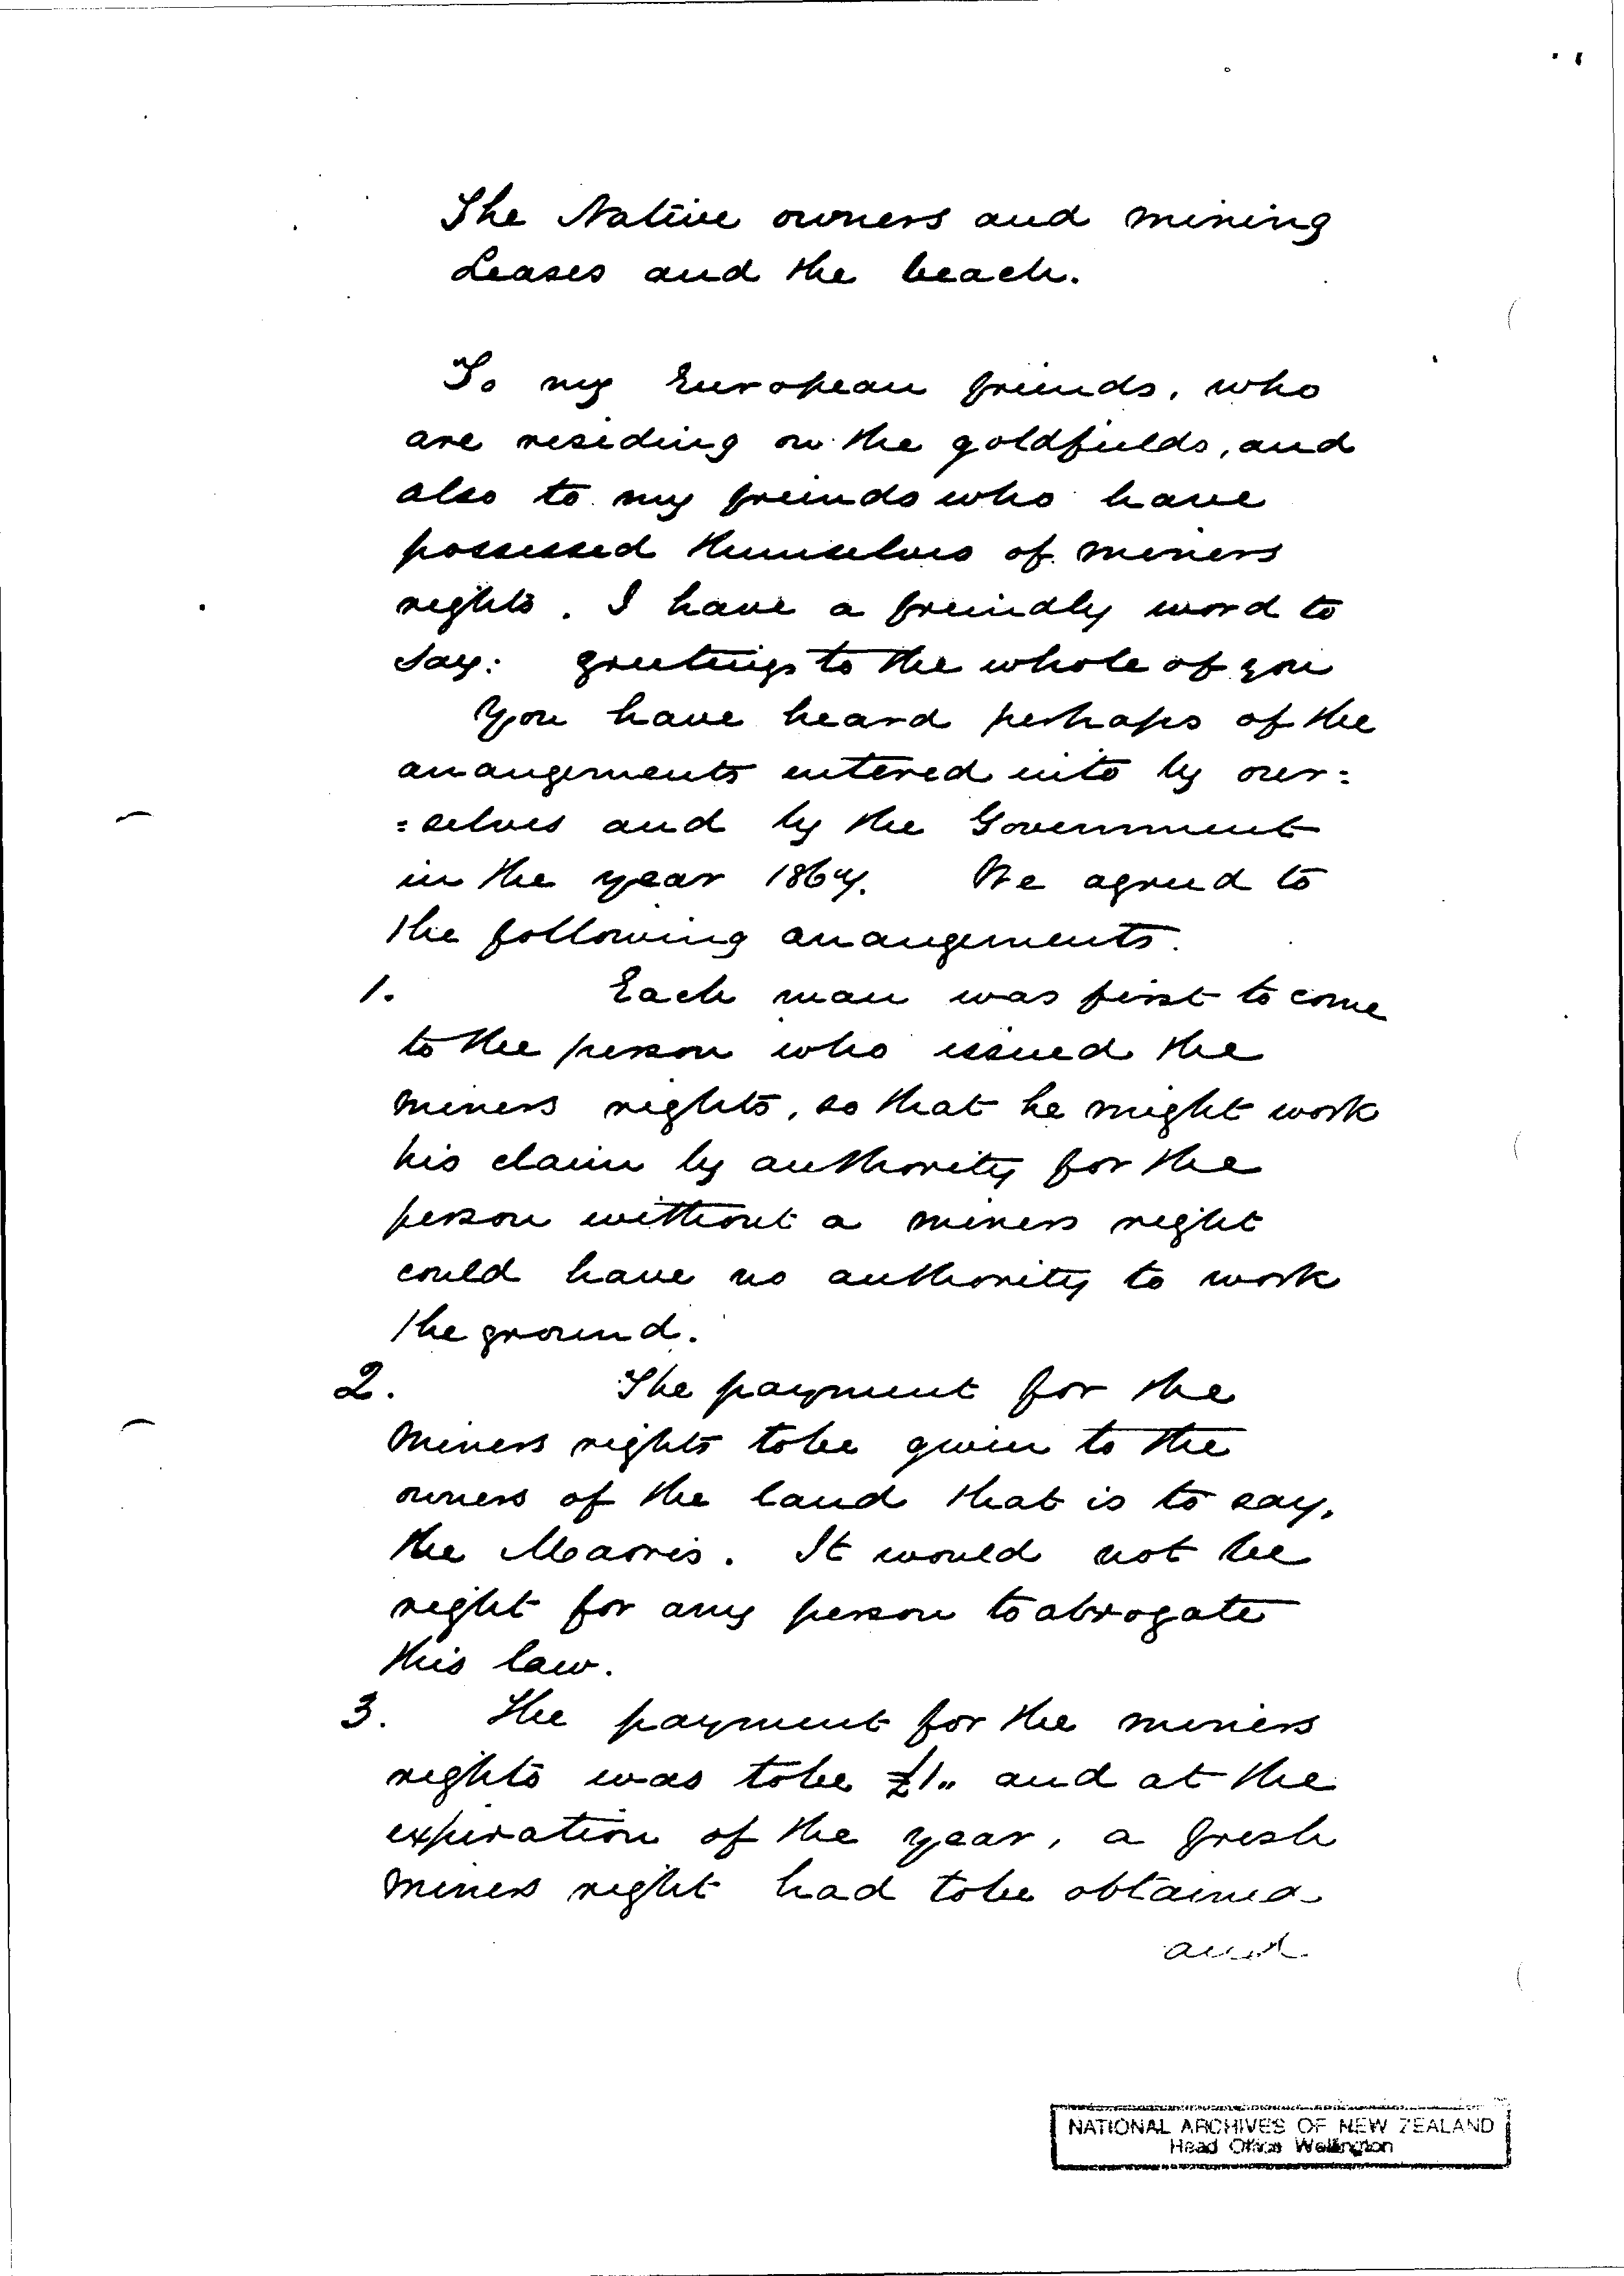 The Native owners and mining
Leases and the beach.
To my European friends, who
are residing on the goldfields, and
also to my friends who have
possessed themselves of miners
rights. I have a friendly word to
say: greetings to the whole of you
You have heard perhaps of the
arrangements entered into by our=
=selves and by the Government
in the year 1867. We agreed to
the following arrangements.
1. Each man was first to come
to the person who issued the
miners rights, so that he might work
his claim by authority for the
person without a miners right
could have no authority to work
the ground.
2. The payment for the
miners rights to be given to the
owners of the land that is to say,
the Maoris. It would not be
right for any person to abrogate
this law.
3. The payment for the miners
rights was to be £1.. and at the
expiration of the year, a fresh
miners right had to be obtained
and
NATIONAL ARCHIVES OF NEW ZEALAND
Head Office Wellington